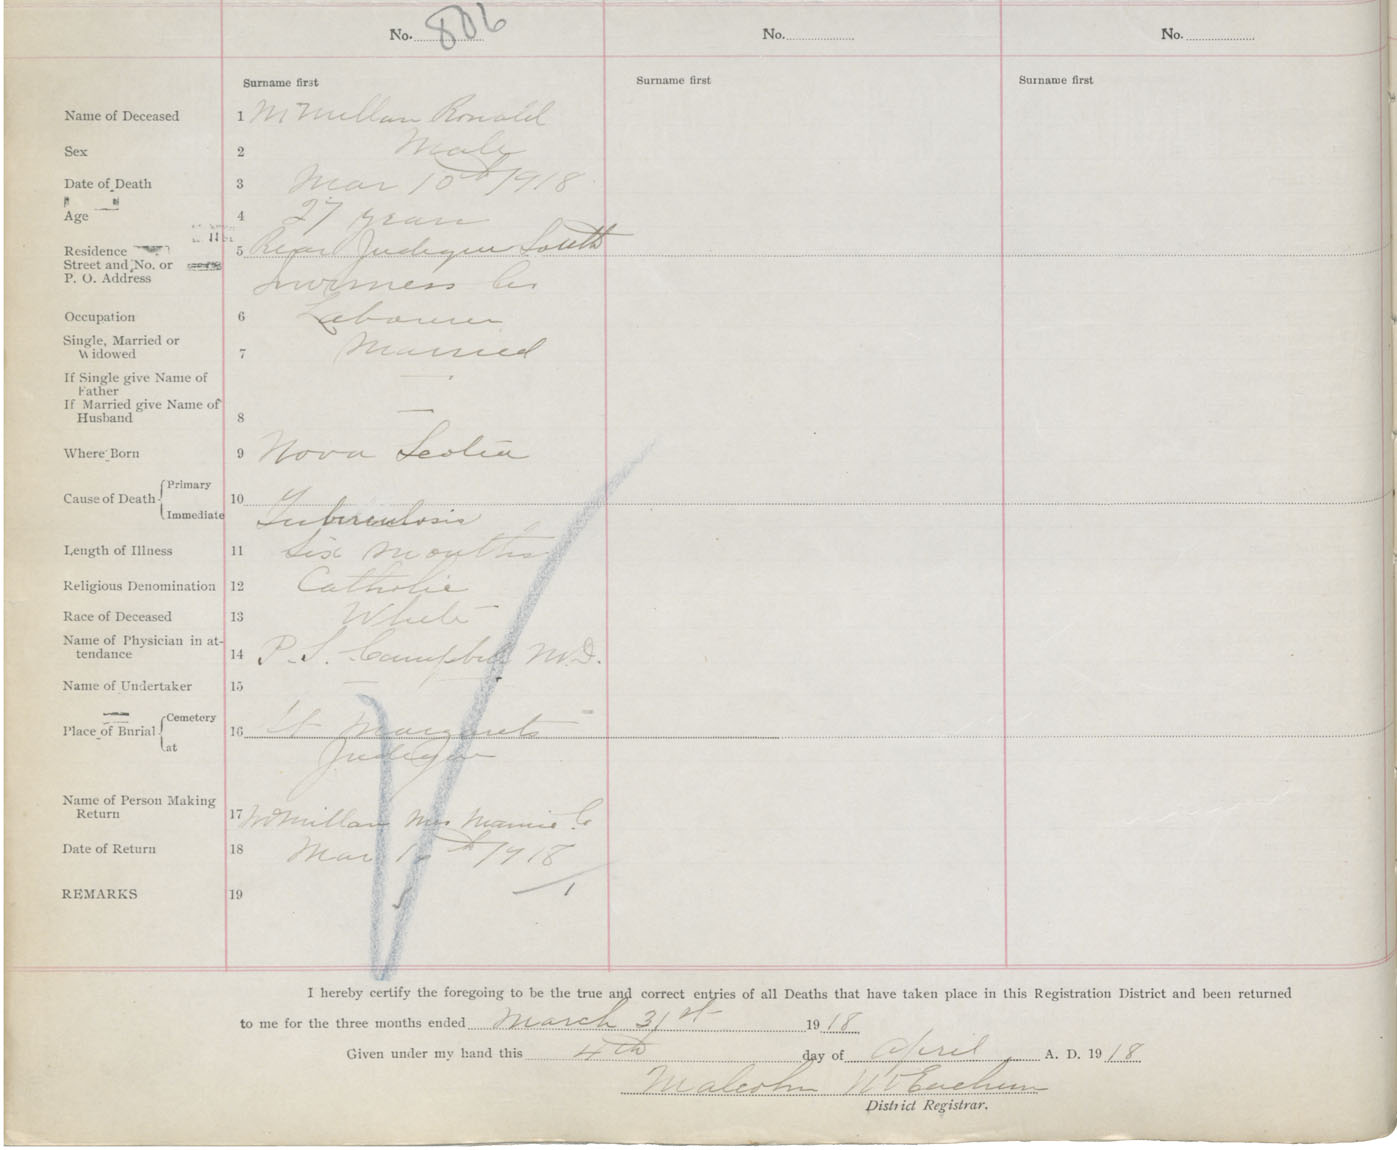 No. 806 No. No.
Surname first Surname first Surname first
Name of Deceased 1 McMillan Ronald
Sex 2 Male
Date of Death 3 Mar 10th 1918
Age 4 27 years
Residence 5 Rear Judique South
Street and No. or
P. O. Address Inverness Co
Occupation 6 Labourer
Single, Married or
Widowed 7 Married
If Single give Name of —
Father
If Married give Name of —
Husband 8
Where Born 9 Nova Scotia
Primary
Cause of Death 10
Immediate Tuberculosis
Length of Illness 11 Six months
Religious Denomination 12 Catholic
Race of Deceased 13 White
Name of Physician in at-
tendance 14 P. S. Campbell M.D.
Name of Undertaker 15 — —
Cemetery
Place of Burial 16 St Margarets
at Judique
Name of Person Making
Return 17 McMillan Mrs Mamie C
Date of Return 18 Mar 1918
REMARKS 19
I hereby certify the foregoing to be the true and correct entries of all Deaths that have taken place in this Registration District and been returned
to me for the three months ended March 31st 1918
Given under my hand this 4th day of April A. D. 1918
Malcolm McEachern
District Registrar.